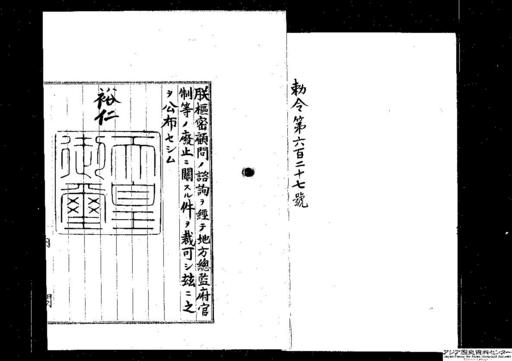 勅令第六百二十七號
朕樞密顧問ノ諮詢ヲ經テ地方總監府官
制等ノ廢止ニ關スル件ヲ裁可シ玆ニ之
ヲ公布セシム
裕仁
天皇
御璽
内
閣
アジア歴史資料センター